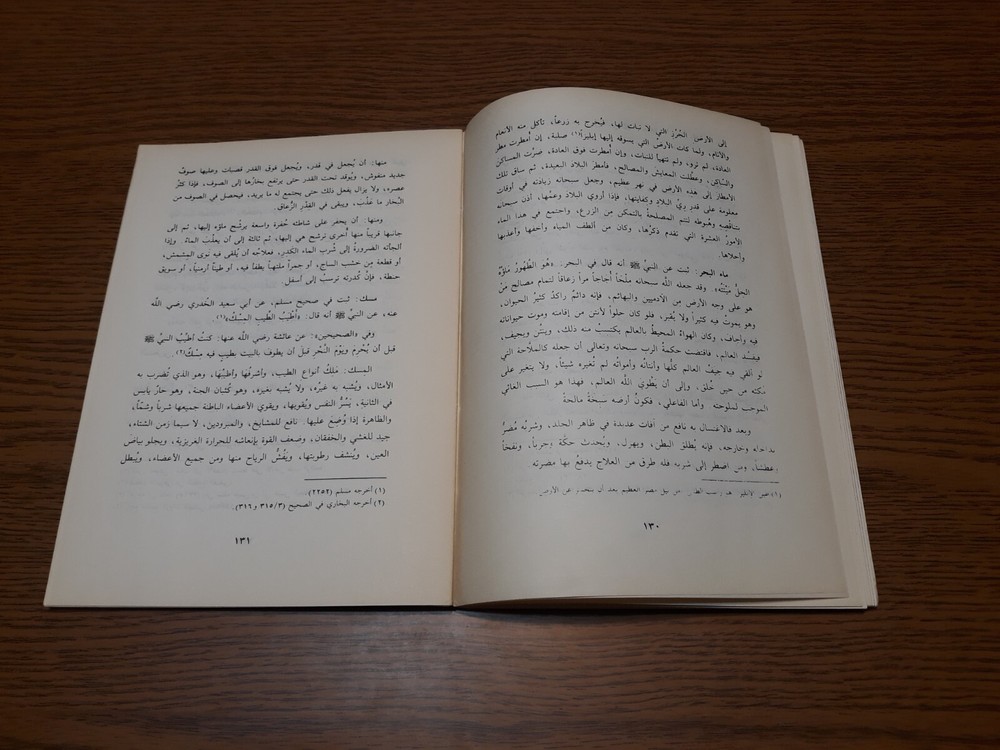 إلى الأرض الجُرُز التي لا نبات لها، فيُخرج به زرعاً، تأكل منه الأنعام
والأنام، ولما كانت الأرضُ التي يسوقه إليها إبليزاً(١) صلبة، إن أُمطرت مطر
العادة، لم تَرْو، ولم تتهيأ للنبات، وإن أُمطرت فوق العادة، ضرَّت المساكنَ
والسَّاكِن، وعطَّلت المعايش والمصالح، فأمطَرَ البلاد البعيدة، ثم ساق تلك
الأمطار إلى هذه الأرض في نهر عظيم، وجعل سبحانه زيادته في أوقات
معلومة على قدر رِيِّ البلاد وكفايتها، فإذا أروى البلاد وعمَّها، أذن سبحانه
بتناقُصِه وهُبوطه لتتم المصلحةُ بالتمكن مِن الزرع، واجتمع في هذا الماء
الأمورُ العشرة التي تقدم ذكرُها، وكان من ألطف المياه وأخفها وأعذبها
وأحلاها.
ماء البحر: ثبت عن النبيِّ ﷺ أنه قال في البحر. «هُوَ الطَّهُورُ مَاؤُهُ
الحِلُّ مَيْتَتُهُ». وقد جعله الله سبحانه مِلْحاً أُجاجاً مراً زُعاقاً لتمام مصالح مَنْ
هو على وجه الأرض مِن الآدميين والبهائم، فإنه دائمٌ راكدٌ كثيرُ الحيوان،
وهو يموتُ فيه كثيراً ولا يُقبر، فلو كان حلواً لأنتن من إقامته وموت حيواناته
فيه وأجاف، وكان الهواءُ المحيطُ بالعالم يكتسِبُ منه ذلك، وينتُن ويجيف،
فيفسُد العالم، فاقتضت حكمةُ الرب سبحانه وتعالى أن جعله كالملاحة التي
لو أُلقي فيه جِيَفُ العالم كلُّها وأنتانُه وأمواتُه لم تُغيره شيئاً، ولا يتغير على
مكثه مِن حين خُلق، وإلى أن يَطْوِيَ اللَّهُ العالم، فهذا هو السبب الغائي
الموجب لملوحته وأما الفاعلي، فكونُ أرضه سَبِخَةً مالحةً
وبعد فالاغتسال به نافع من آفات عديدة في ظاهر الجلد، وشربُه مُضِرٌّ
بداخله وخارجه، فإنه يُطلق البطن، ويهزل، ويُحدث حِكَّة وجرباً، ونفخاً
وعطشاً، ومن اضطر إلى شربه فله طرق من العلاج يدفعُ بها مضرته
١٣٠
منها: أن يُجعل في قدر، ويُجعل فوق القدر قصبات وعليها صوفٌ
جديد منفوش، ويُوقد تحت القدر حتى يرتفع بخارُها إلى الصوف، فإذا كثُرَ
عصره، ولا يزال يفعل ذلك حتى يجتمع له ما يريد، فيحصل في الصوف من
البُخار ما عَذُبَ، ويبقى في القِدْرِ الزُّعاق.
ومنها: أن يحفر على شاطئه حُفرة واسعة يرشَّح ماؤه إليها، ثم إلى
جانبها قريباً منها أُخرى ترشح هي إليها، ثم ثالثة إلى أن يعذُبَ الماءُ وإذا
ألجأته الضرورةُ إلى شُرب الماء الكدر، فعلاجُه أن يُلقى فيه نوى المِشمش،
أو قطعة مِن خشب الساج، أو جمراً ملتهباً يطفأ فيه، أو طيناً أرمنياً، أو سويق
حنطة، فإنَّ كُدرته ترسبُ إلى أسفل.
مسك: ثبت في صحيح مسلم، عن أبي سعيد الخدري رضي اللَّه
عنه، عن النبيِّ ﷺ أنه قال: «أطْيَبُ الطِّيبِ المِسْكُ»(١).
وفي «الصحيحين»: عن عائشة رضي الله عنها: كنتُ أطَيِّبُ النبيَّ ﷺ
قبل أن يُحْرِمَ ويَوْمَ النَّحْرِ قبل أن يطوف بالبيت بطيب فيه مِسْكٌ(٢).
المِسك: مَلِكُ أنواع الطيب، وأشرفُها وأطيبُها، وهو الذي تُضرب به
الأمثال، ويُشبَّه به غيرُه، ولا يُشبه بغيره، وهو كُثبان الجنة، وهو حارٌّ يابس
في الثانية، يَسُرُّ النفس ويُقويها، ويقوي الأعضاء الباطنة جميعها شرباً وشمّاً،
والظاهرة إذا وُضِعَ عليها. نافع للمشايخ، والمبرودين، لا سيما زمن الشتاء،
جيد للغشي والخفقان، وضعف القوة بإنعاشه للحرارة الغريزية، ويجلو بياضَ
العين، ويُنشف رطوبتها، ويَفُشُّ الرياح منها ومن جميع الأعضاء، ويُبطل
(١) أخرجه مسلم (٢٢٥٢).
(٢) أخرجه البخاري في الصحيح (٣١٥/٣ و ٣١٦).
١٣١